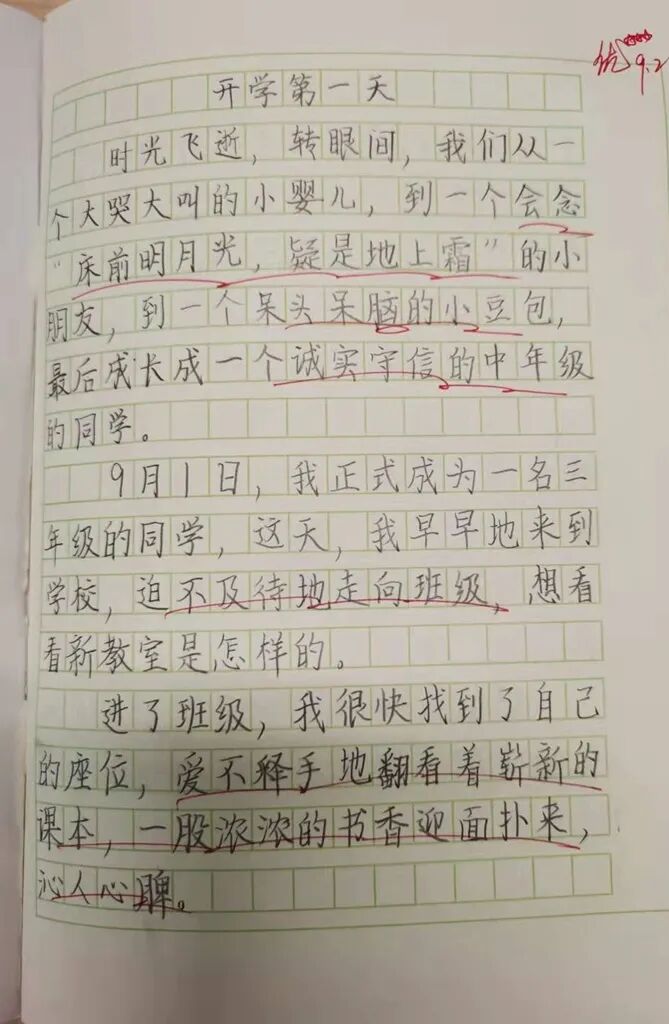 优
9.2
开学第一天
时光飞逝，转眼间，我们从一
个大哭大叫的小婴儿，到一个会念
“床前明月光，疑是地上霜”的小
朋友，到一个呆头呆脑的小豆包，
最后成长成一个诚实守信的中年级
的同学。
9月1日，我正式成为一名三
年级的同学，这天，我早早地来到
学校，迫不及待地走向班级，想看
看新教室是怎样的。
进了班级，我很快找到了自己
的座位，爱不释手地翻看着崭新的
课本，一股浓浓的书香迎面扑来，
沁人心脾。